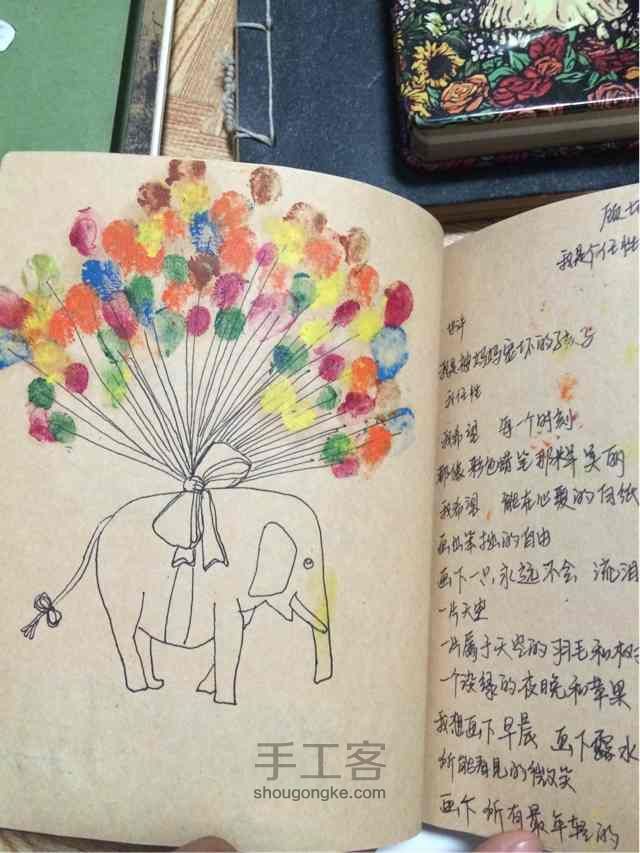 顾城
我是个任性
也许
我是被妈妈宠坏的孩子
我任性
我希望 每一个时刻
都像彩色蜡笔那样美丽
我希望 能在心爱的白纸
画出笨拙的自由
画下一只永远不会 流泪
一片天空
一片属于天空的羽毛和树
一个淡绿的夜晚和苹果
我想画下早晨 画下露水
所能看见的微笑
画下所有最年轻的
手工客
shougongke.com